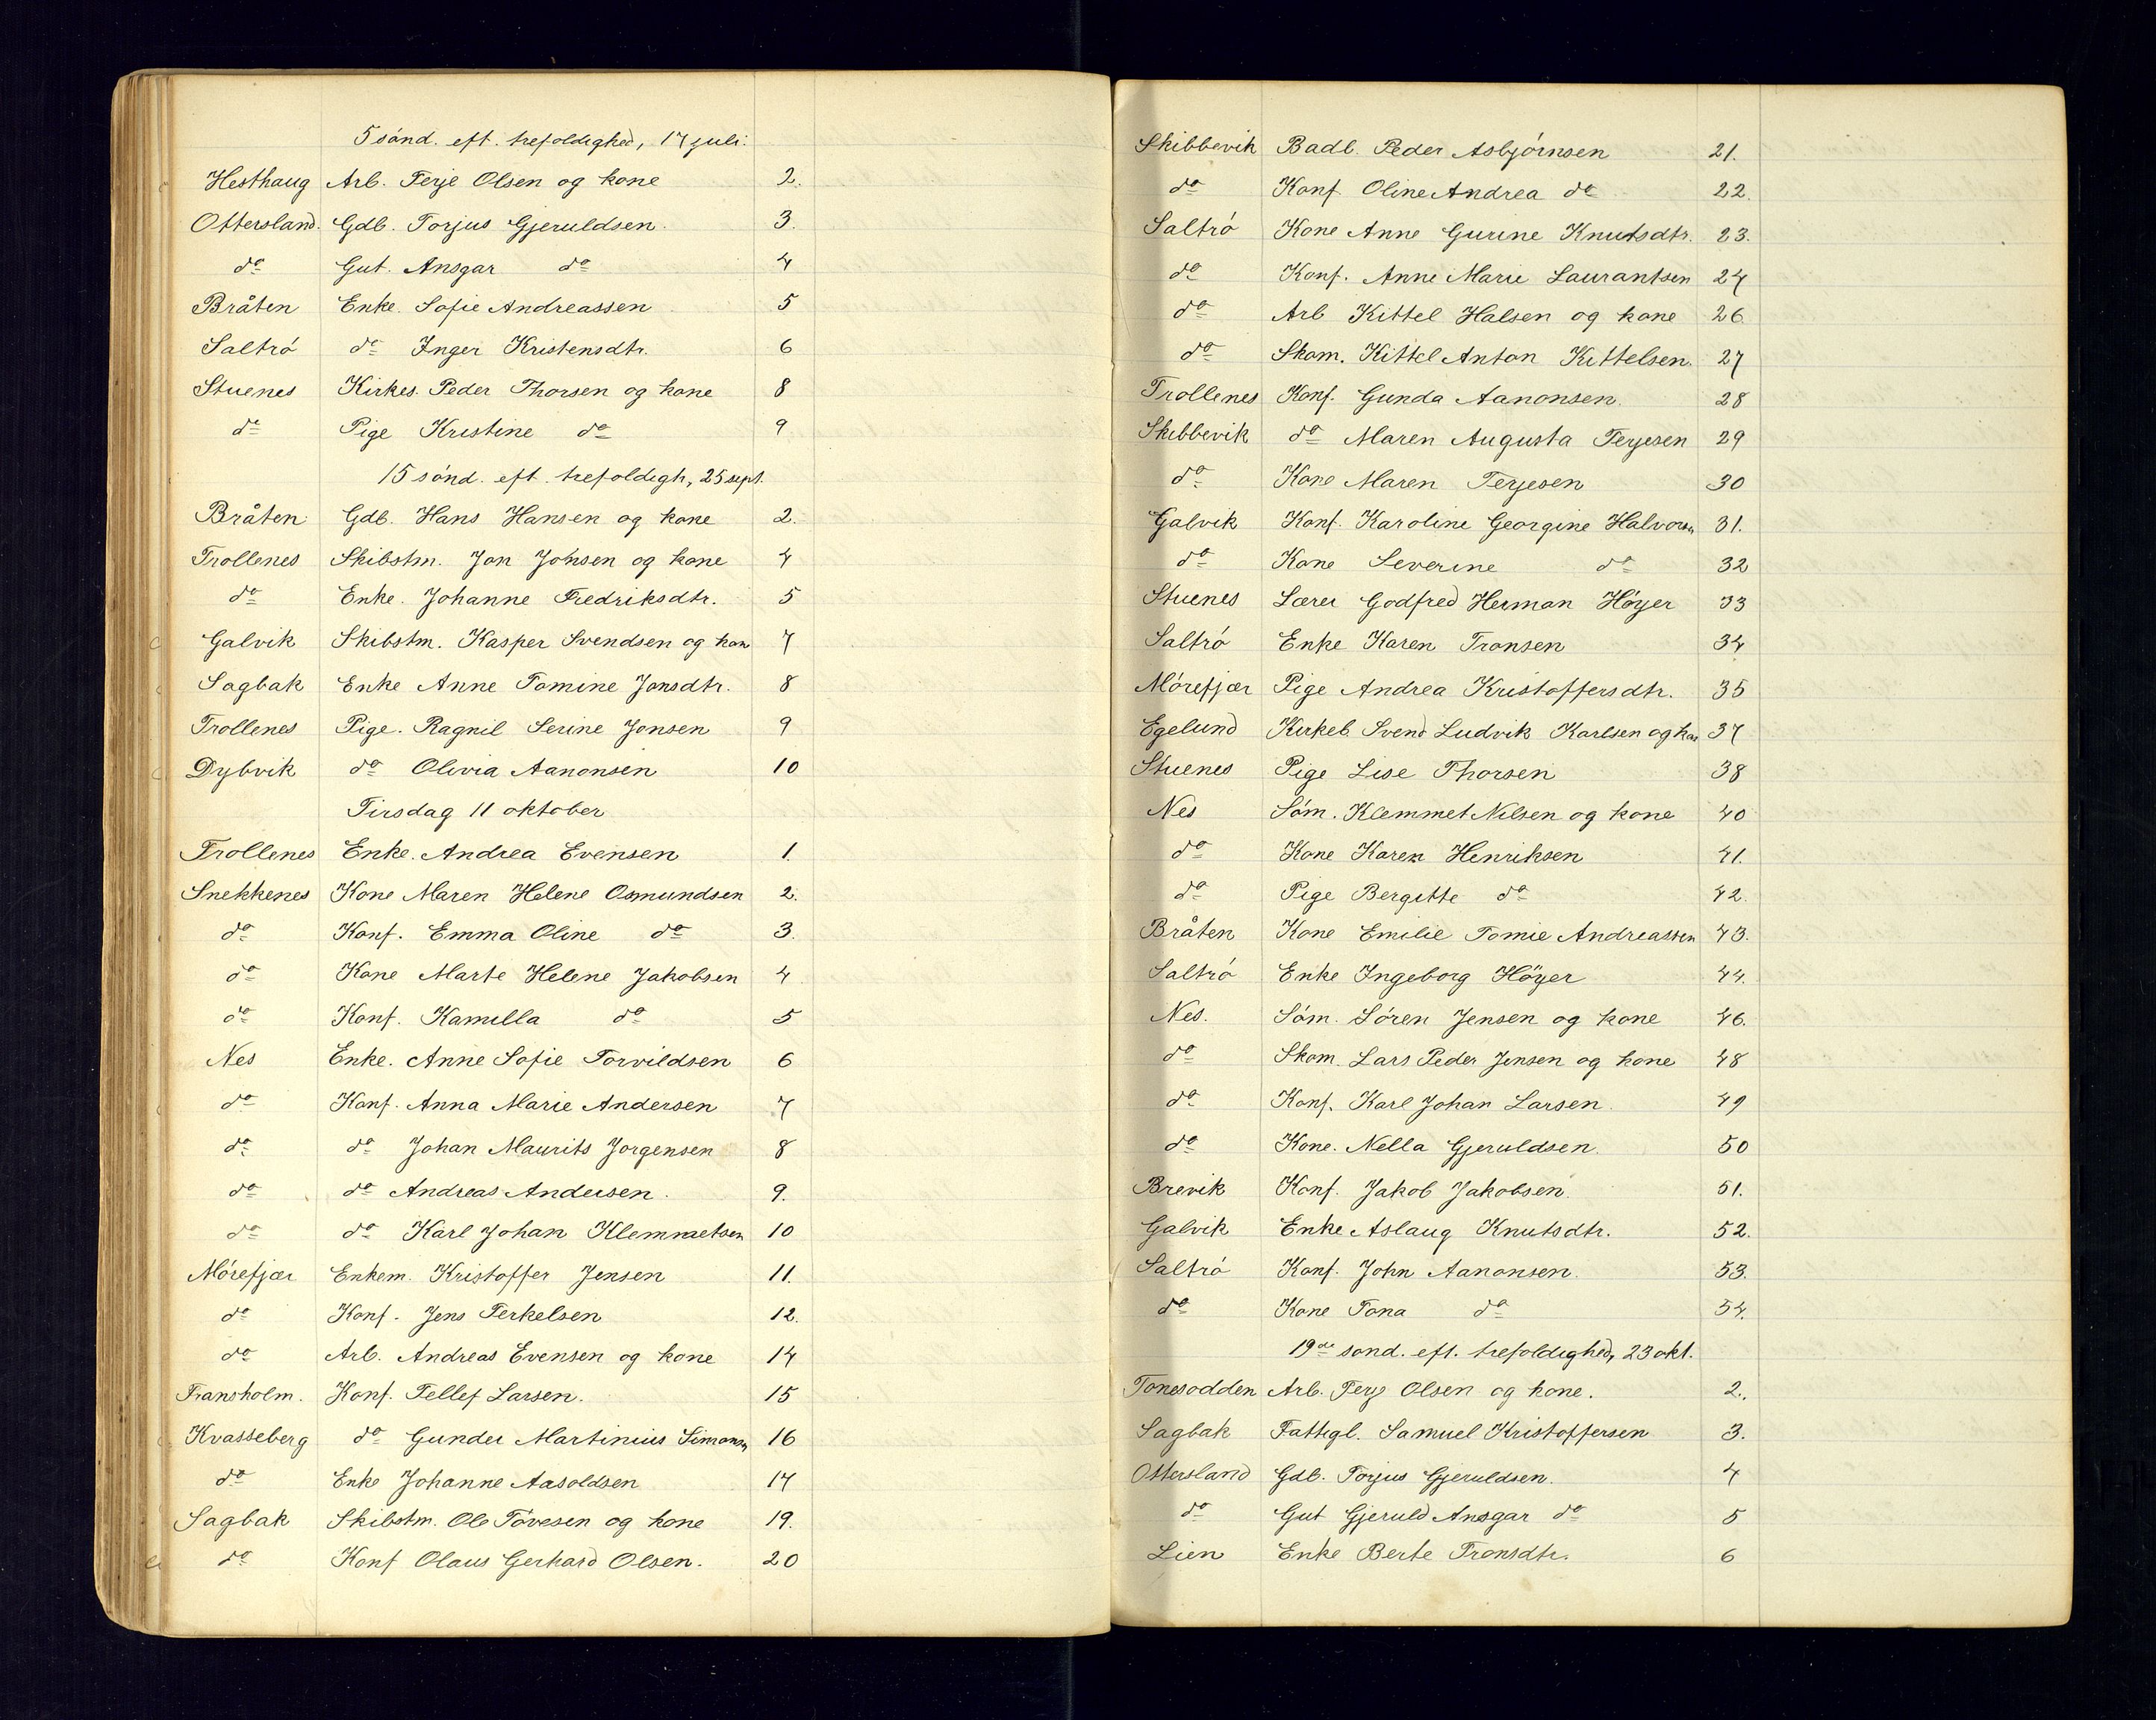 5 sønd. eft. trefoldighed, 17 juli.
Hesthaug Arb. Terje Olsen og kone 2.
Ottersland. Gdb. Torjus Gjeruldsen. 3.
do Gut. Ansgar do 4
Bråten Enke. Sofie Andreassen 5
Saltrø do Inger Kristensdtr. 6
Stuenes Kirkes. Peder Thorsen og kone 8
do Pige Kristine do 9
15 sønd. eft. trefoldigh, 25 sept.
Bråten Gdb. Hans Hansen og kone 2.
Trollenes Skibstm. Jon Johsen og kone 4
do Enke. Johanne Fredriksdtr. 5
Galvik Skibstm. Kasper Svendsen og kon 7
Sagbak Enke Anne Tomine Jonsdtr. 8
Trollenes Pige. Ragnil Serine Jonsen 9
Dybvik do Olivia Aanonsen 10
Tirsdag 11 oktober
Trollenes Enke. Andrea Evensen 1.
Snekkenes Kone Maren Helene Osmundsen 2.
do Konf. Emma Oline do 3.
do Kone Marte Helene Jakobsen 4
do Konf. Kamilla do 5
Nes Enke. Anne Sofie Torvildsen 6
do Konf. Anna Marie Andersen 7
do do Johan Maurits Jorgensen 8
do do Andreas Andersen. 9.
do do Karl Johan Klemmetsen 10
Mórefjær Enkem. Kristoffer Jensen 11.
do Konf. Jens Terkelsen 12.
do Arb. Andreas Evensen og kone 14
Fransholm. Konf. Tellef Larsen. 15
Kvasseberg do Gunder Martinius Simonsn 16
do Enke Johanne Aasoldsen 17
Sagbak Skibstm. Ole Tøvesen og kone 19.
do Konf Olaus Gerhard Olsen. 20
Skibbevik Badb. Peder Asbjørnsen 21.
do Konf. Oline Andrea do 22.
Saltrø Kone Anne Gurine Knutsdtr. 23.
do Konf. Anne Marie Laurantsen 24
do Arb Kittel Halsen og kone 26.
do Skom. Kittel Anton Kittelsen. 27
Trollenes Konf. Gunda Aanonsen. 28
Skibbevik do Maren Augusta Terjesen 29
do Kone Maren Terjesen 30
Galvik Konf. Karoline Georgine Halvorsn 31.
do Kone Severine do 32
Stuenes Lærer Godfred Herman Høyer 33
Saltrø Enke Karen Tronsen 34
Mórefjær Pige Andrea Kristoffersdtr. 35
Egelund Kirkeb. Svend Ludvik Karlsen og kon 37
Stuenes Pige Lise Thorsen 38
Nes Søm. Klemmet Nilsen og kone 40
do Kone Karen Henriksen 41.
do Pige Bergitte do 42.
Bråten Kone Emilie Tomie Andreassen 43.
Saltrø Enke Ingeborg Høyer 44.
Nes. Søm. Søren Jensen og kone 46.
do Skom. Lars Peder Jensen og kone 48
do Konf. Karl Johan Larsen. 49
do Kone. Nella Gjeruldsen. 50
Brevik Konf. Jakob Jakobsen. 51.
Galvik Enke Aslaug Knutsdtr. 52.
Saltrø Konf. John Aanonsen. 53.
do Kone Tona do 54.
19de sond. eft. trefoldighed, 23 okt.
Tonesodden Arb. Terje Olsen og kone. 2.
Sagbak Fattigl. Samuel Kristoffersen 3.
Ottersland Gdb. Torjus Gjeruldsen. 4
do Gut Gjeruld Ansgar do 5
Lien Enke Berte Tronsdtr. 6